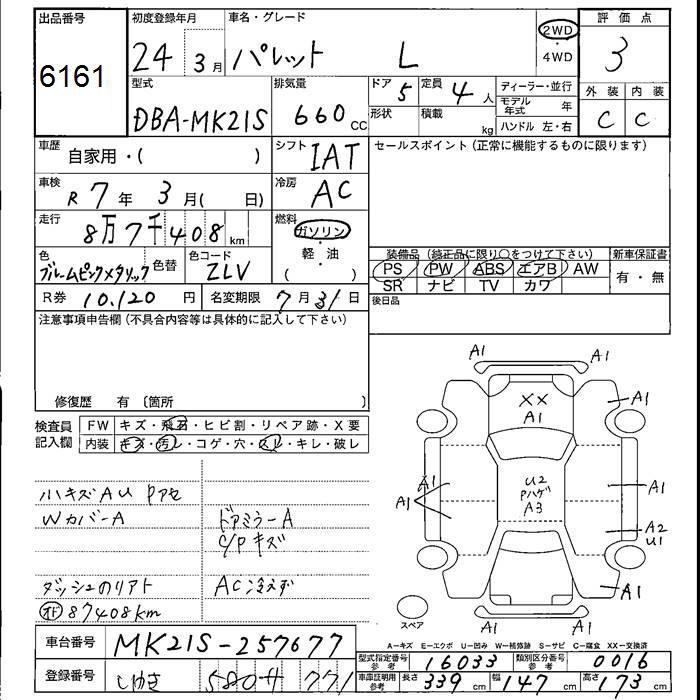 出品番号
6161
初度登録年月
24 3月
車名・グレード
パレット L
2WD
・
4WD
評価点
3
外装 内装
C C
型式
DBA-MK21S
排気量
660 CC
ドア
5
定員
4人
形状
積載
kg
ディーラー・並行
モデル年式 年
ハンドル 左・右
車歴
自家用・( )
シフト
IAT
セールスポイント(正常に機能するものに限ります)
車検
R 7年 3月( 日)
冷房
AC
走行
8万7千408km
燃料
ガソリン
・
軽・油
( )
色
ブルームピンクメタリック
色替
色コード
ZLV
装備品(純正品に限り○をつけて下さい)
PS PW ABS エアB AW
SR ナビ TV カワ
新車保証書
有・無
R券 10,120 円
名変期限 7月31日
後日品
注意事項申告欄(不具合内容等は具体的に記入して下さい)
修復歴 有〔箇所
検査員
記入欄
FW キズ・飛石・ヒビ割・リペア跡・X要
内装 キズ・汚レ・コゲ・穴・スレ・キレ・破レ
ハキズAU Pアセ
Wカバー A
ドアミラーA
C/Pキズ
ダッシュのリアト
AC冷えず
オド 87408km
A1
A1
XX
A1
A1
A1
A1
A1
U2
Pハゲ
A3
A1
A2
U1
A1
A1
スペア
A=キズ E=エクボ U=凹み W=補修跡 S=サビ C=腐食 XX=交換済
車台番号
MK21S-257677
型式指定番号
参考
16033
類別区分番号
参考
0016
登録番号
580 771
車庫証明用
参考
長さ 339 cm 幅 147 cm 高さ 173 cm